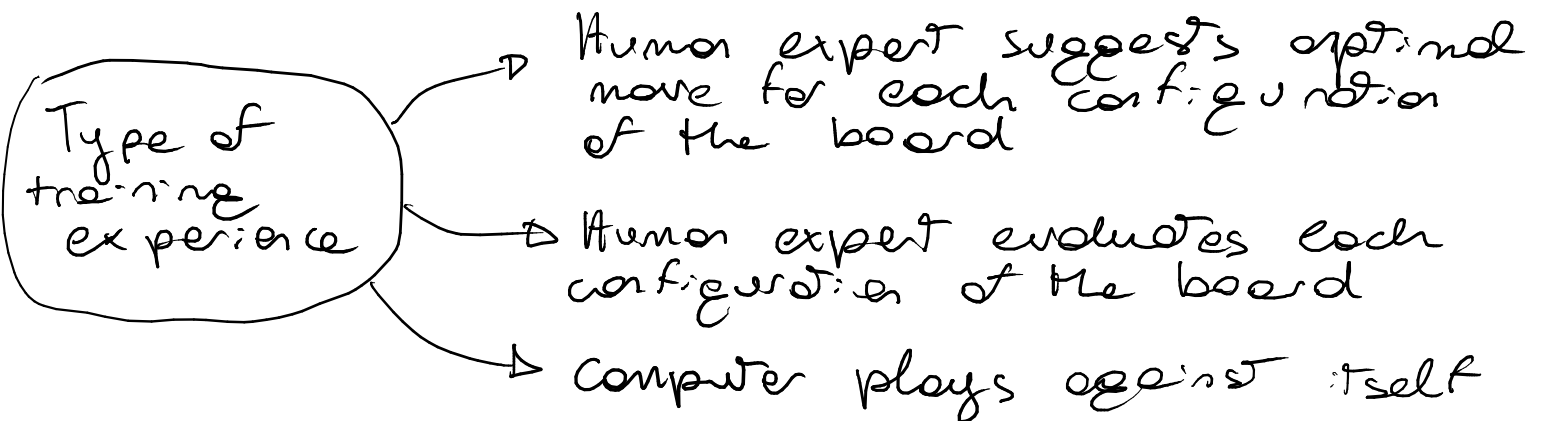 Type of
training
experience
Human expert suggests optimal
move for each configuration
of the board
Human expert evaluates each
configuration of the board
Computer plays against itself